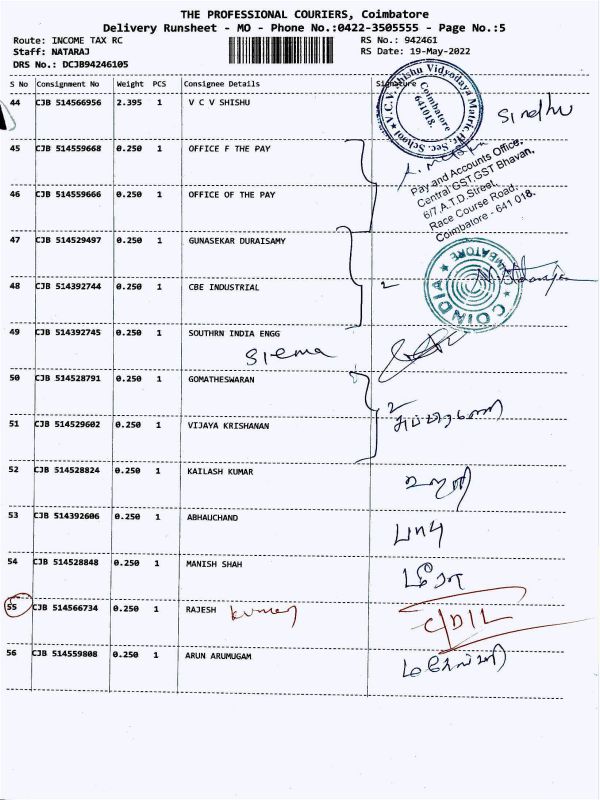 THE PROFESSIONAL COURIERS, Coimbatore
Delivery Runsheet - MO - Phone No.:0422-3505555 - Page No.:5
Route: INCOME TAX RC RS No.: 942461
Staff: NATARAJ RS Date: 19-May-2022
DRS No.: DCJB94246105
S No Consignment No Weight PCS Consignee Details Signature
44 CJB 514566956 2.395 1 V C V SHISHU Sindhu
V.C.V. Shishu Vidyodaya Matric. Hr. Sec. School
Coimbatore
641018.
45 CJB 514559668 0.250 1 OFFICE F THE PAY
Pay and Accounts Office,
Central GST, GST Bhavan,
6/7, A.T.D. Street,
Race Course Road,
Coimbatore - 641 018.
46 CJB 514559666 0.250 1 OFFICE OF THE PAY
47 CJB 514529497 0.250 1 GUNASEKAR DURAISAMY
COINDIA COIMBATORE
48 CJB 514392744 0.250 1 CBE INDUSTRIAL 2
49 CJB 514392745 0.250 1 SOUTHRN INDIA ENGG
Siema
50 CJB 514528791 0.250 1 GOMATHESWARAN 2
51 CJB 514529602 0.250 1 VIJAYA KRISHANAN
52 CJB 514528824 0.250 1 KAILASH KUMAR
53 CJB 514392606 0.250 1 ABHAUCHAND
54 CJB 514528848 0.250 1 MANISH SHAH
55 CJB 514566734 0.250 1 RAJESH Kumar C/D/L
56 CJB 514559808 0.250 1 ARUN ARUMUGAM